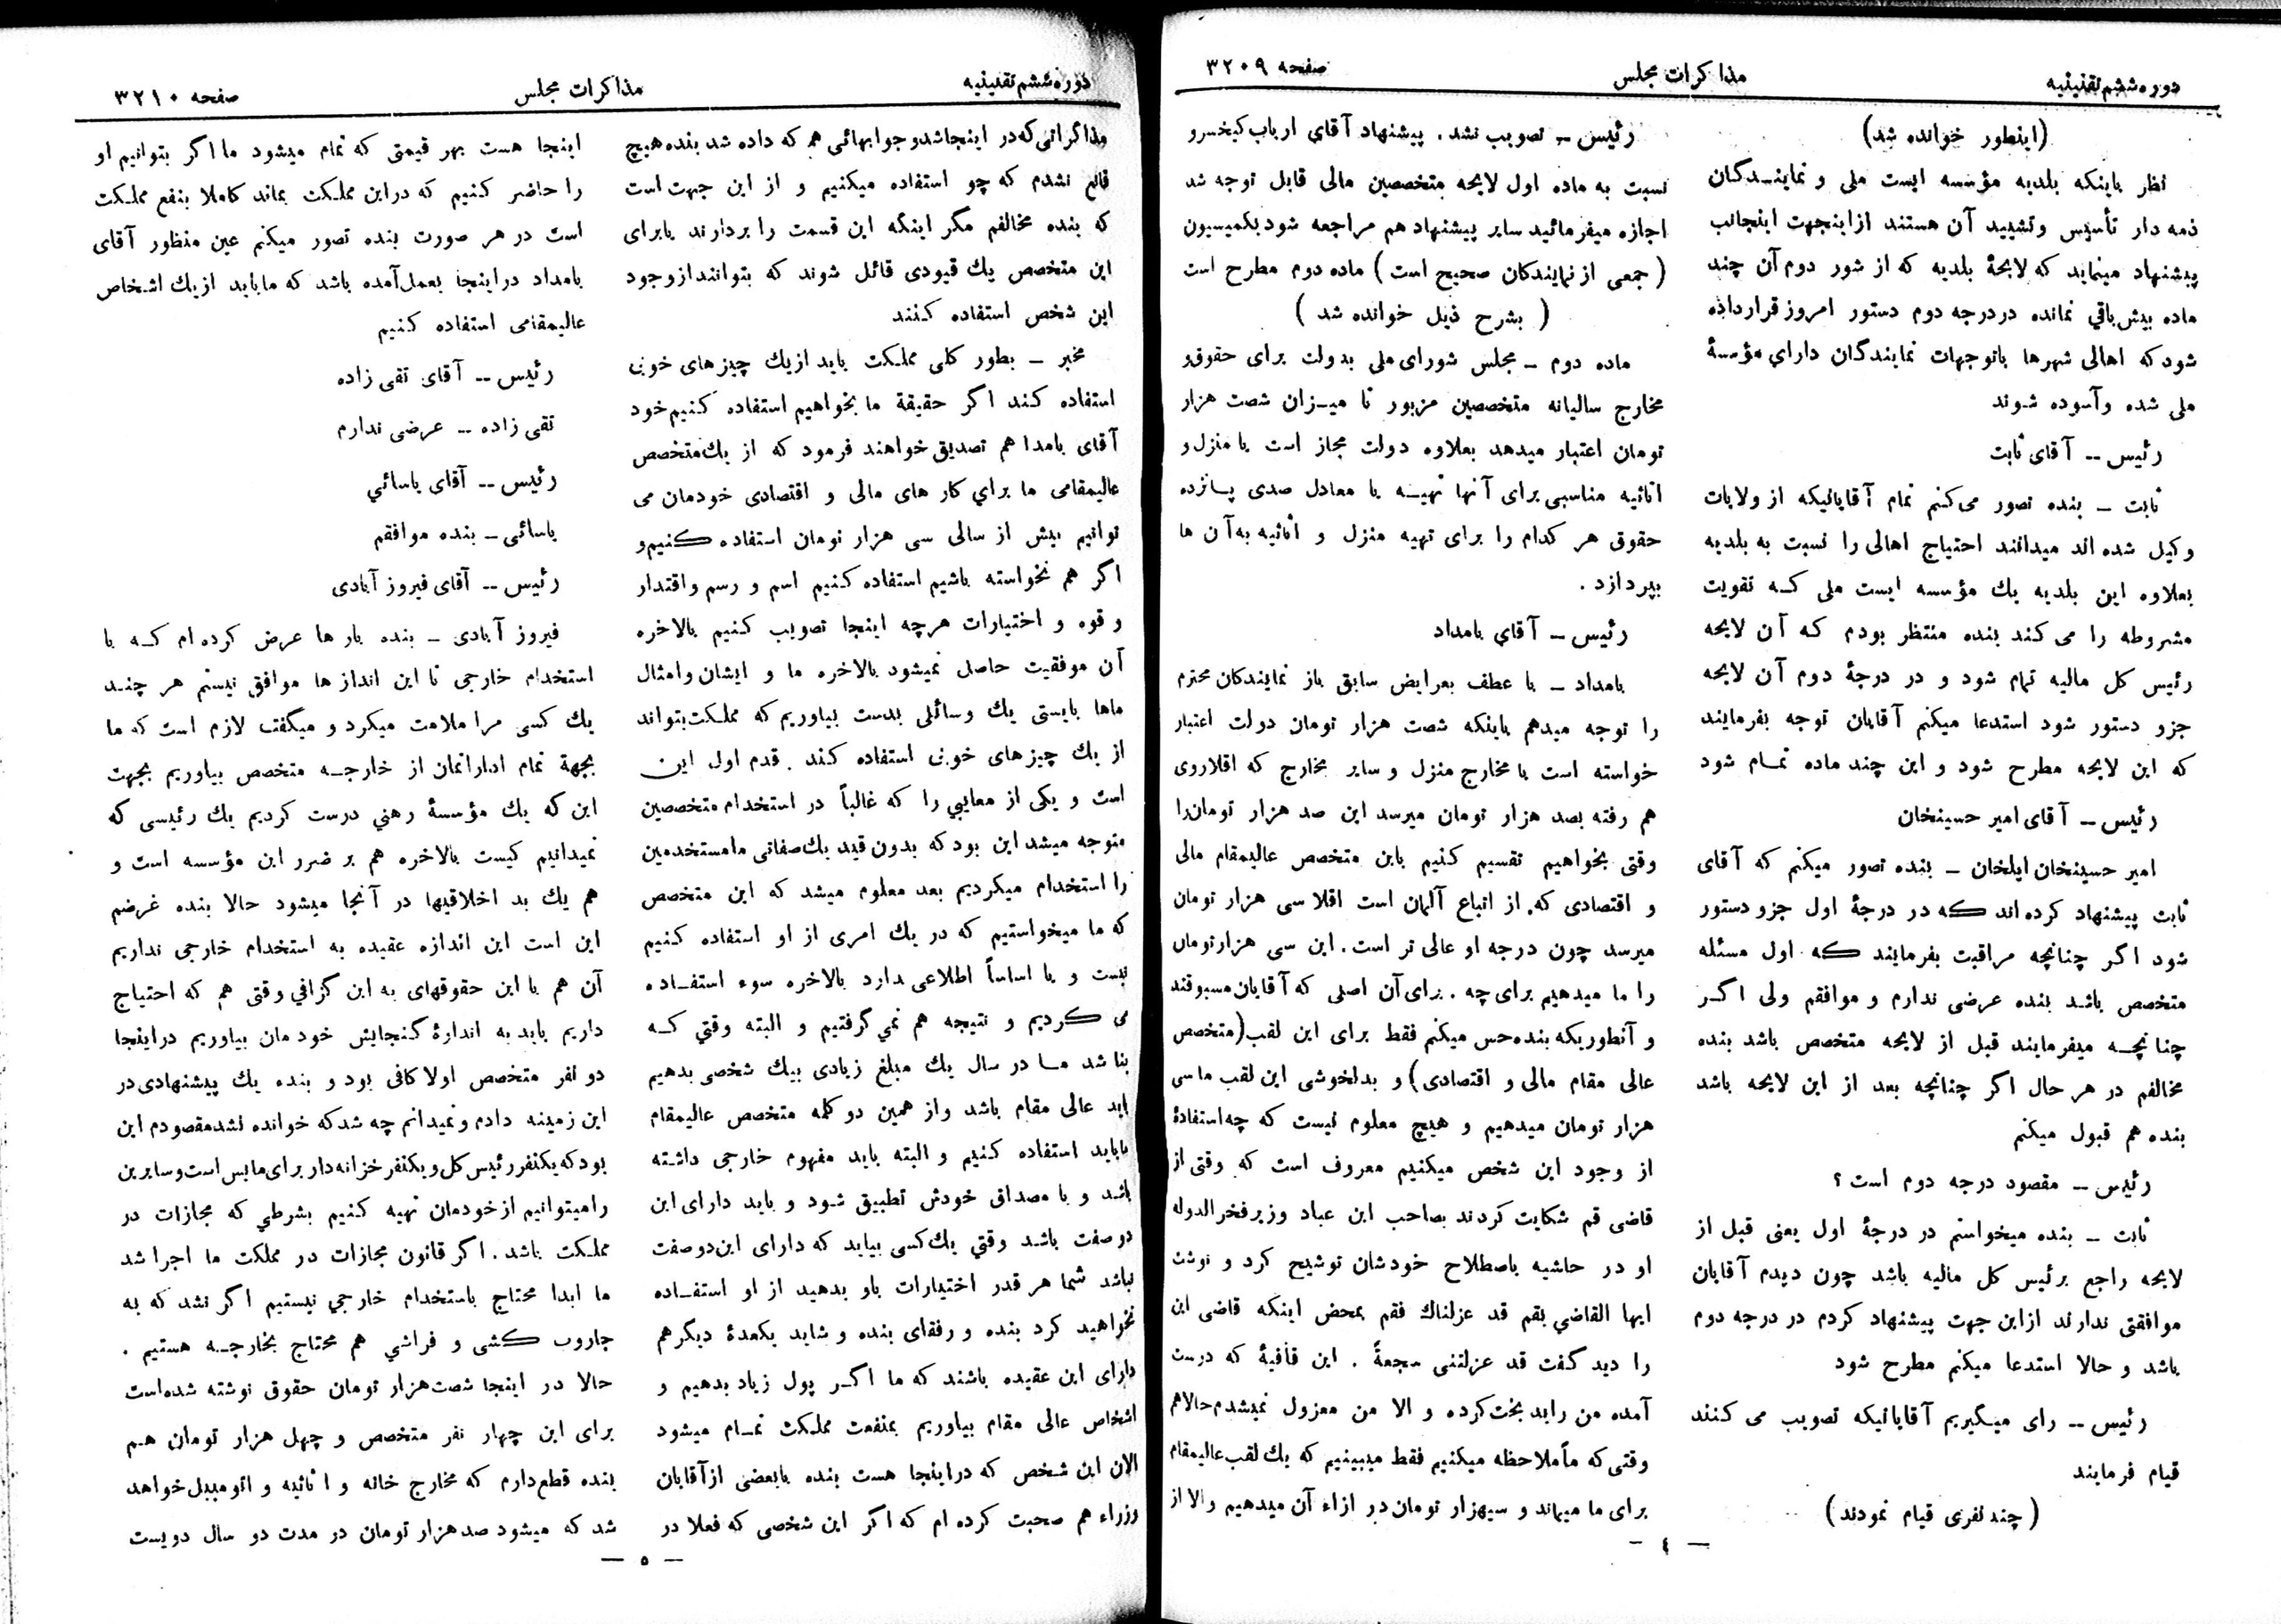 دوره ششم تقنینیه
مذاکرات مجلس
صفحه ۳۲۰۹
(اینطور خوانده شد)
نظر باینکه بلدیه مؤسسه ایست ملی و نمایندگان
ذمه دار تأسیس وتشیید آن هستند ازاینجهت اینجانب
پیشنهاد مینماید که لایحۀ بلدیه که از شور دوم آن چند
ماده بیش باقی نمانده دردرجه دوم دستور امروز قرارداده
شود که اهالی شهرها باتوجهات نمایندگان دارای مؤسسۀ
ملی شده وآسوده شوند
رئیس -- آقای ثابت
ثابت - بنده تصور می‌کنم تمام آقایانیکه از ولایات
وکیل شده اند میدانند احتیاج اهالی را نسبت به بلدیه
بعلاوه این بلدیه یك مؤسسه ایست ملی که تقویت
مشروطه را می کند بنده منتظر بودم که آن لایحه
رئیس کل مالیه تمام شود و در درجۀ دوم آن لایحه
جزو دستور شود استدعا میکنم آقایان توجه بفرمایند
که این لایحه مطرح شود و این چند ماده تمام شود
رئیس - آقای امیر حسینخان
امیر حسینخان ایلخان - بنده تصور میکنم که آقای
ثابت پیشنهاد کرده‌اند که در درجۀ اول جزو دستور
شود اگر چنانچه مراقبت بفرمایند که اول مسئله
متخصص باشد بنده عرضی ندارم و موافقم ولی اگر
چنانچه میفرمایند قبل از لایحه متخصص باشد بنده
مخالفم در هر حال اگر چنانچه بعد از این لایحه باشد
بنده هم قبول میکنم
رئیس - مقصود درجه دوم است ؟
ثابت - بنده میخواستم در درجۀ اول یعنی قبل از
لایحه راجع برئیس کل مالیه باشد چون دیدم آقایان
موافقتی ندارند ازاین جهت پیشنهاد کردم در درجه دوم
باشد و حالا استدعا میکنم مطرح شود
رئیس -- رای میگیریم آقایانیکه تصویب می کنند
قیام فرمایند
(چند نفری قیام نمودند)
رئیس - تصویب نشد . پیشنهاد آقای ارباب کیخسرو
نسبت به ماده اول لایحه متخصصین مالی قابل توجه شد
اجازه میفرمائید سایر پیشنهاد هم مراجعه شود بکمیسیون
(جمعی از نمایندکان صحیح است) ماده دوم مطرح است
(بشرح ذیل خوانده شد)
ماده دوم - مجلس شورای ملی بدولت برای حقوق و
مخارج سالیانه متخصصین مزبور تا میزان شصت هزار
تومان اعتبار میدهد بعلاوه دولت مجاز است یا منزل و
اثاثیه مناسبی برای آنها تهیه یا معادل صدی پانزده
حقوق هر کدام را برای تهیه منزل و اثاثیه به آن ها
بپردازد .
رئیس - آقای بامداد
بامداد - با عطف بعرایض سابق باز نمایندکان محترم
را توجه میدهم باینکه شصت هزار تومان دولت اعتبار
خواسته است با مخارج منزل و سایر مخارج که اقلاروی
هم رفته بصد هزار تومان میرسد این صد هزار تومان‌را
وقتی بخواهیم تقسیم کنیم باین متخصص عالیمقام مالی
و اقتصادی که از اتباع آلمان است اقلا سی هزار تومان
میرسد چون درجه او عالی تر است . این سی هزارتومان
را ما میدهیم برای چه . برای آن اصلی که آقایان مسبوقند
و آنطوریکه بنده حس میکنم فقط برای این لقب(متخصص
عالی مقام مالی و اقتصادی) و بدلخوشی این لقب ماسی
هزار تومان میدهیم و هیچ معلوم نیست که چه استفادۀ
از وجود این شخص میکنیم معروف است که وقتی از
قاضی قم شکایت کردند بصاحب ابن عباد وزیر فخرالدوله
او در حاشیه باصطلاح خودشان توشیح کرد و نوشت
ایها القاضي بقم قد عزلناك فقم بمحض اینکه قاضی این
را دید گفت قد عزلتنی سجعةً . این قافیۀ که درست
آمده من رابدبخت کرده و الا من معزول نمیشدم حالاهم
وقتی که ماملاحظه میکنیم فقط میبینیم که یك لقب عالیمقام
برای ما میماند و سیهزار تومان در ازاء آن میدهیم والا از
— ٤ -
دوره ششم تقنینیه
مذاکرات مجلس
صفحه ۳۲۱۰
مذاکراتی که در اینجاشدو جوابهائی هم که داده شد بنده هیچ
قانع نشدم که چو استفاده میکنیم و از این جهت است
که بنده مخالفم مگر اینکه این قسمت را بردارند یابرای
این متخصص یك قیودی قائل شوند که بتوانند ازوجود
این شخص استفاده کنند
مخبر - بطور کلی مملکت باید ازیك چیزهای خوبی
استفاده کند اگر حقیقة ما بخواهیم استفاده کنیم خود
آقای بامدا هم تصدیق خواهند فرمود که از یك متخصص
عالیمقامی ما برای کار های مالی و اقتصادی خودمان می
توانیم بیش از سالی سی هزار تومان استفاده کنیم و
اگر هم نخواسته باشیم استفاده کنیم اسم و رسم واقتدار
و قوه و اختیارات هرچه اینجا تصویب کنیم بالاخره
آن موفقیت حاصل نمیشود بالاخره ما و ایشان وامثال
ماها بایستی یك وسائلی بدست بیاوریم که مملکت بتواند
از یك چیزهای خوبی استفاده کند . قدم اول این
است و یکی از معایبی را که غالباً در استخدام متخصصین
متوجه میشد این بود که بدون قید یك صفاتی مامستخدمین
را استخدام میکردیم بعد معلوم میشد که این متخصص
که ما میخواستیم که در یك امری از او استفاده کنیم
نیست و یا اساساً اطلاعی ندارد بالاخره سوء استفاده
می کردیم و نتیجه هم نمی گرفتیم و البته وقتی که
بنا شد ما در سال یك مبلغ زیادی بیك شخصی بدهیم
باید عالی مقام باشد واز همین دو کلمه متخصص عالیمقام
باباید استفاده کنیم و البته باید مفهوم خارجی داشته
باشد و با مصداق خودش تطبیق شود و باید دارای این
دوصفت باشد وقتی یك کسی بیاید که دارای این دو صفت
نباشد شما هر قدر اختیارات باو بدهید از او استفاده
نخواهید کرد بنده و رفقای بنده و شاید یکعدۀ دیگرهم
دارای این عقیده باشند که ما اگر پول زیاد بدهیم و
اشخاص عالی مقام بیاوریم بمنفعت مملکت تمام میشود
الان این شخص که دراینجا هست بنده بابعضی ازآقایان
وزراء هم صحبت کرده ام که اگر این شخصی که فعلا در
اینجا هست بهر قیمتی که تمام میشود ما اگر بتوانیم او
را حاضر کنیم که دراین مملکت بماند کاملا بنفع مملکت
است در هر صورت بنده تصور میکنم عین منظور آقای
بامداد دراینجا بعمل آمده باشد که ماباید ازیك اشخاص
عالیمقامی استفاده کنیم
رئیس -- آقای تقی زاده
تقی زاده -- عرضی ندارم
رئیس -- آقای یاسائی
یاسائی - بنده موافقم
رئیس -- آقای فیروز آبادی
فیروز آبادی - بنده بار ها عرض کرده ام که با
استخدام خارجی تا این اندازها موافق نیستم هر چند
یك کسی مرا ملامت میکرد و میگفت لازم است که ما
بجهة تمام اداراتمان از خارجه متخصص بیاوریم بجهت
این که یك مؤسسۀ رهنی درست کردیم یك رئیسی که
نمیدانیم کیست بالاخره هم بر ضرر این مؤسسه است و
هم یك بد اخلاقیها در آنجا میشود حالا بنده غرضم
این است این اندازه عقیده به استخدام خارجی نداریم
آن هم با این حقوقهای به این گزافی وقتی هم که احتیاج
داریم باید به اندازۀ گنجایش خودمان بیاوریم دراینجا
دو نفر متخصص اولا کافی بود و بنده یك پیشنهادی در
این زمینه دادم و نمیدانم چه شد که خوانده نشد مقصودم این
بود که یکنفر رئیس کل و یکنفر خزانه دار برای مابس است وسایرین
رامیتوانیم ازخودمان تهیه کنیم بشرطی که مجازات در
مملکت باشد . اگر قانون مجازات در مملکت ما اجرا شد
ما ابدا محتاج باستخدام خارجی نیستیم اگر نشد که به
جاروب کشی و فراشی هم محتاج بخارجه هستیم .
حالا در اینجا شصت هزار تومان حقوق نوشته شده است
برای این چهار نفر متخصص و چهل هزار تومان هم
بنده قطع دارم که مخارج خانه و اثاثیه و اتومبیل خواهد
شد که میشود صد هزار تومان در مدت دو سال دویست
— ٥ —